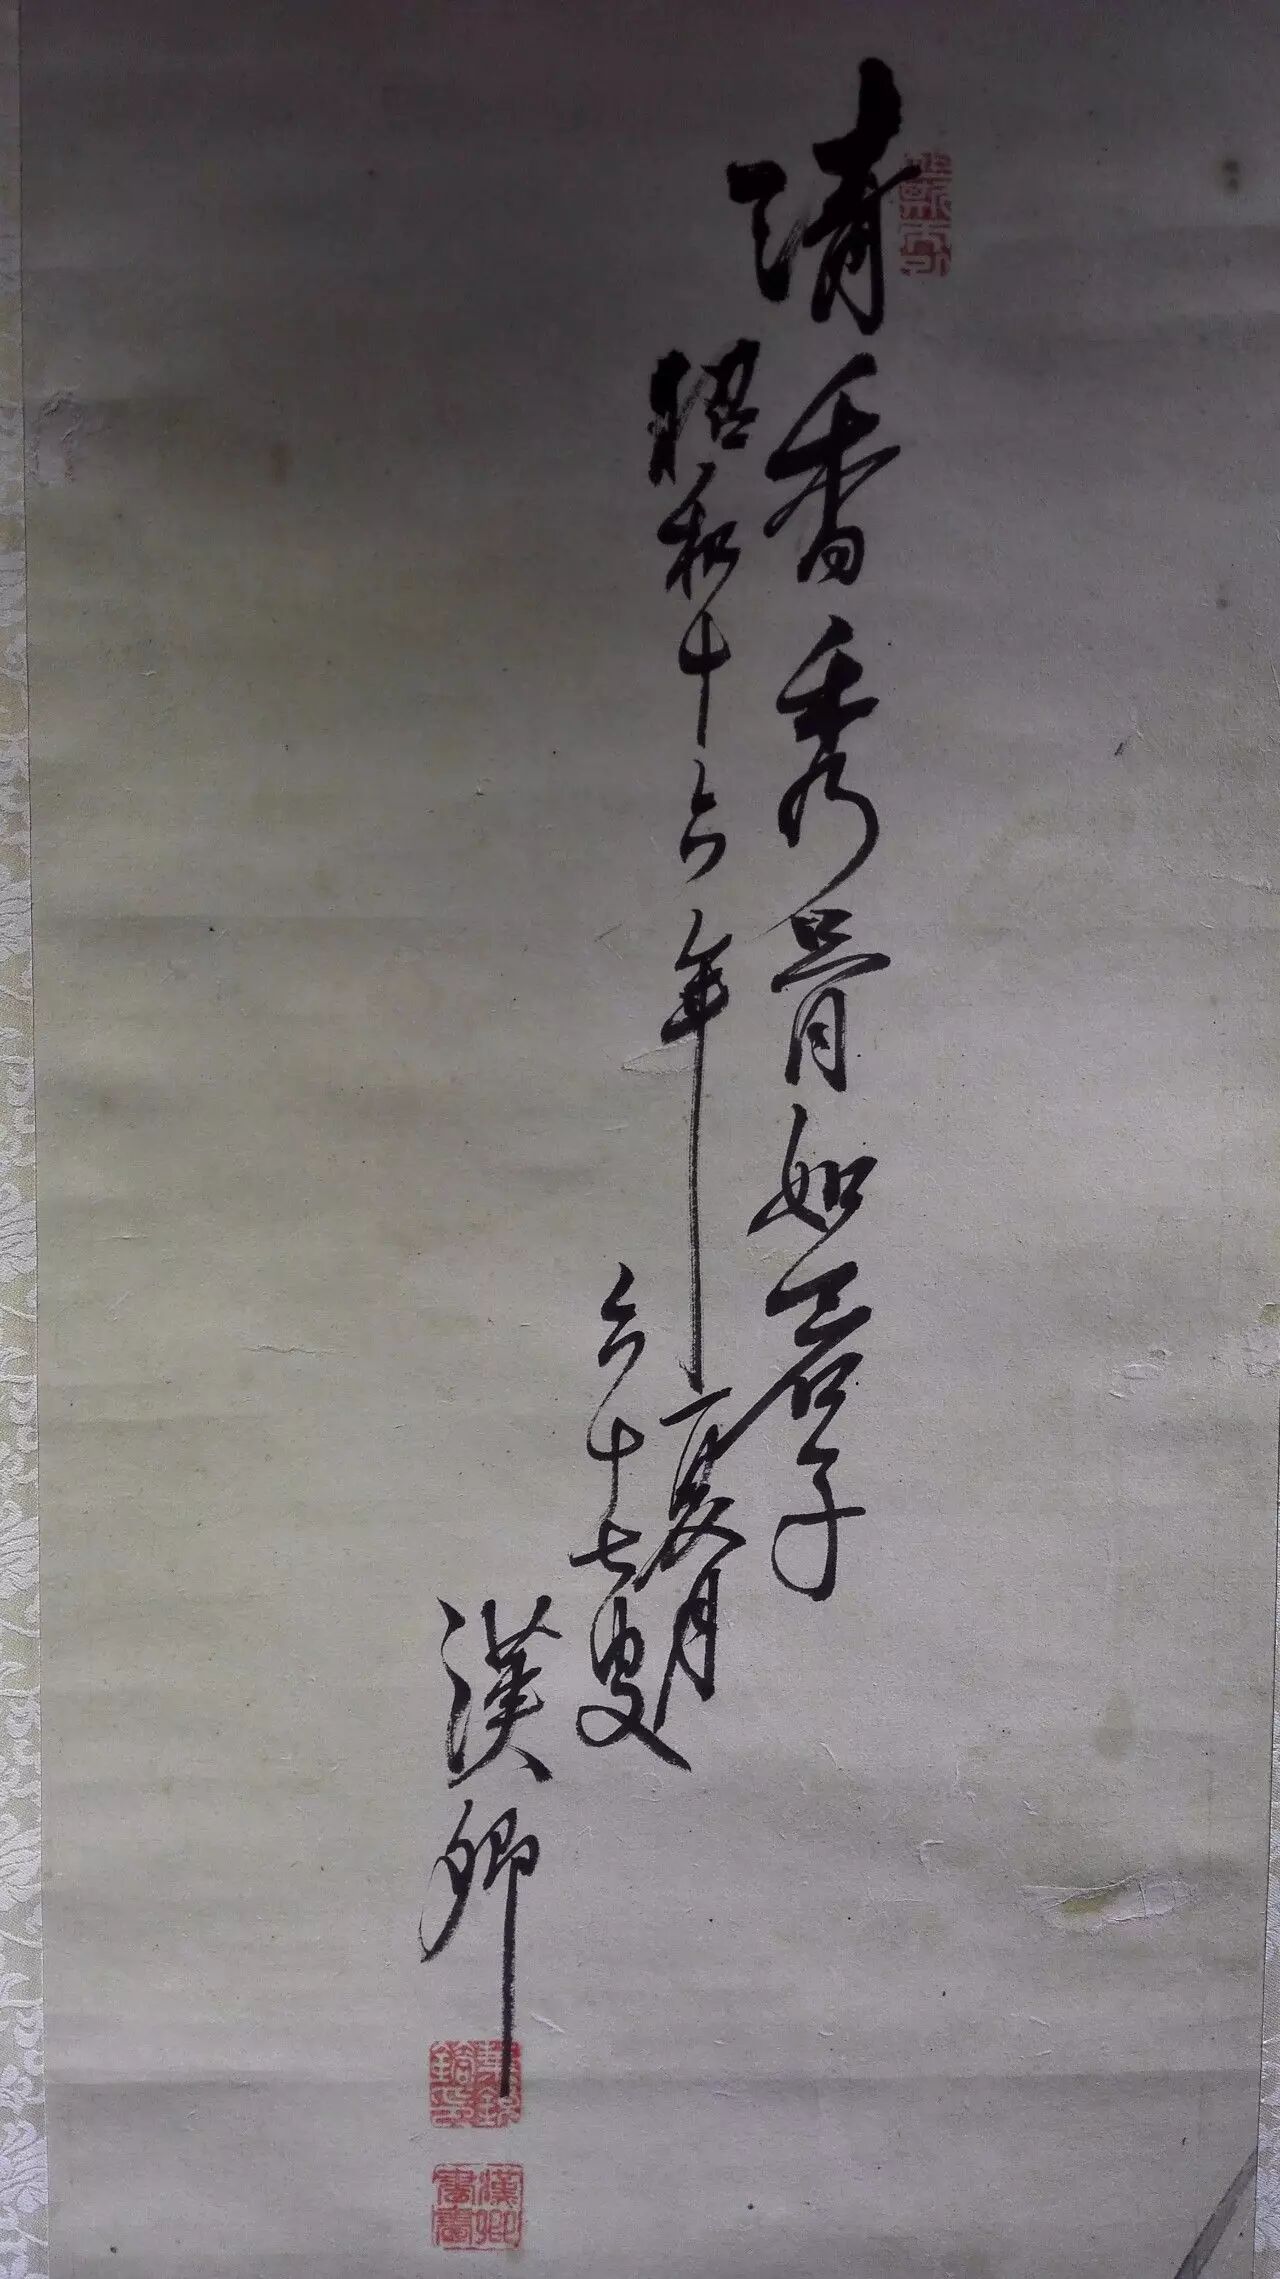 清香秀骨如君子
昭和十六年夏月
六十七叟
漢卿
漢卿書畫